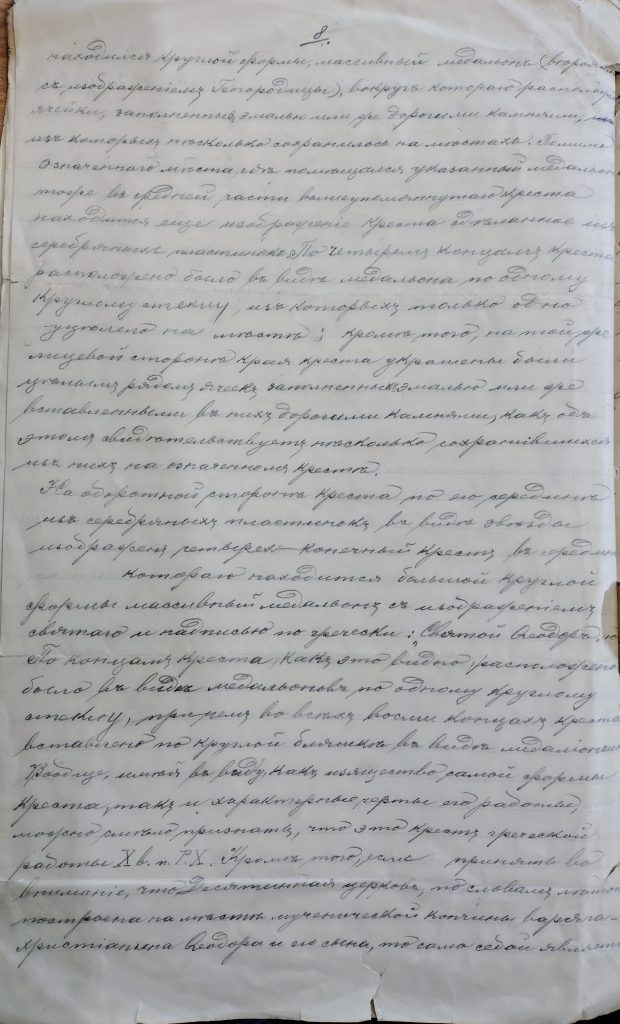 8.
находился круглой формы, массивный медальонъ (второй
съ изображеніемъ Богородицы), вокругъ котораго располож
ячейки, заполненныя эмалью или же дорогими камнями,
изъ которыхъ нѣсколько сохранилось на мѣстахъ. Помимо
означеннаго мѣста, гдѣ помѣщался указанный медальон
тоже въ средней части вышеупомянутаго креста
находится еще изображеніе креста сдѣланное изъ
серебряныхъ пластинокъ. По четыремъ концамъ креста
расположено было въ видѣ медальона по одному
круглому стеклу, изъ которыхъ только одно
уцѣлѣло на мѣстѣ; кромѣ того, на той же
лицевой сторонѣ края креста украшены были
цѣлымъ рядомъ ячеекъ заполненныхъ эмалью или же
вставленными въ нихъ дорогими камнями, какъ объ
этомъ свидѣтельствуетъ нѣсколько сохранившихся
изъ нихъ на означенномъ крестѣ.
На оборотной сторонѣ креста по его серединѣ
изъ серебряныхъ пластинокъ въ видѣ звѣзды
изображенъ четырех-конечный крестъ, въ средин
части котораго находится большой круглой
формы массивный медальонъ съ изображеніемъ
святаго и надписью по гречески: „Святой Ѳеодоръ",
По концамъ креста, какъ это видно, расположено
было въ видѣ медальоновъ по одному круглому
стеклу, причемъ во всѣхъ восьми концахъ креста
вставлено по круглой бляшкѣ въ видѣ медаліончик
Вообще, имѣя въ виду, какъ изящество самой формы
креста, такъ и характерные черты его работы,
можно смѣло признать, что это крестъ греческой
работы X в. п. Р. Х. Кромѣ того, если принять во
вниманіе, что Десятинная церковь, по словамъ лѣтоп
построена на мѣстѣ мученической кончины варяга-
христіанина Ѳеодора и его сына, то само собой являетс